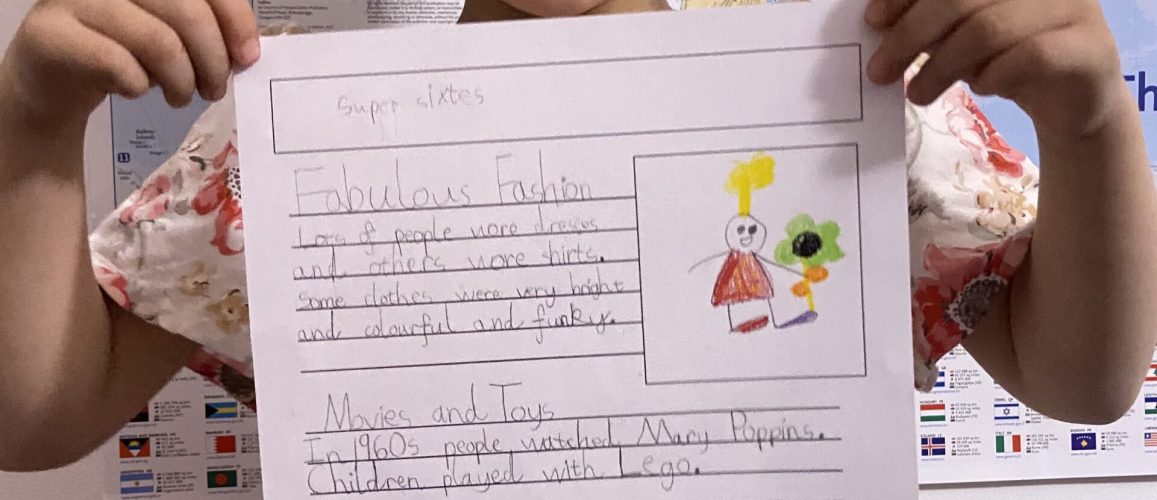 Super sixtes
Fabulous Fashion
Lots of people wore dresses
and others wore shirts.
some clothes were very bright
and colourful and funky.
Movies and Toys
In 1960s people watched Mary Poppins.
Children played with Lego.
11
Th